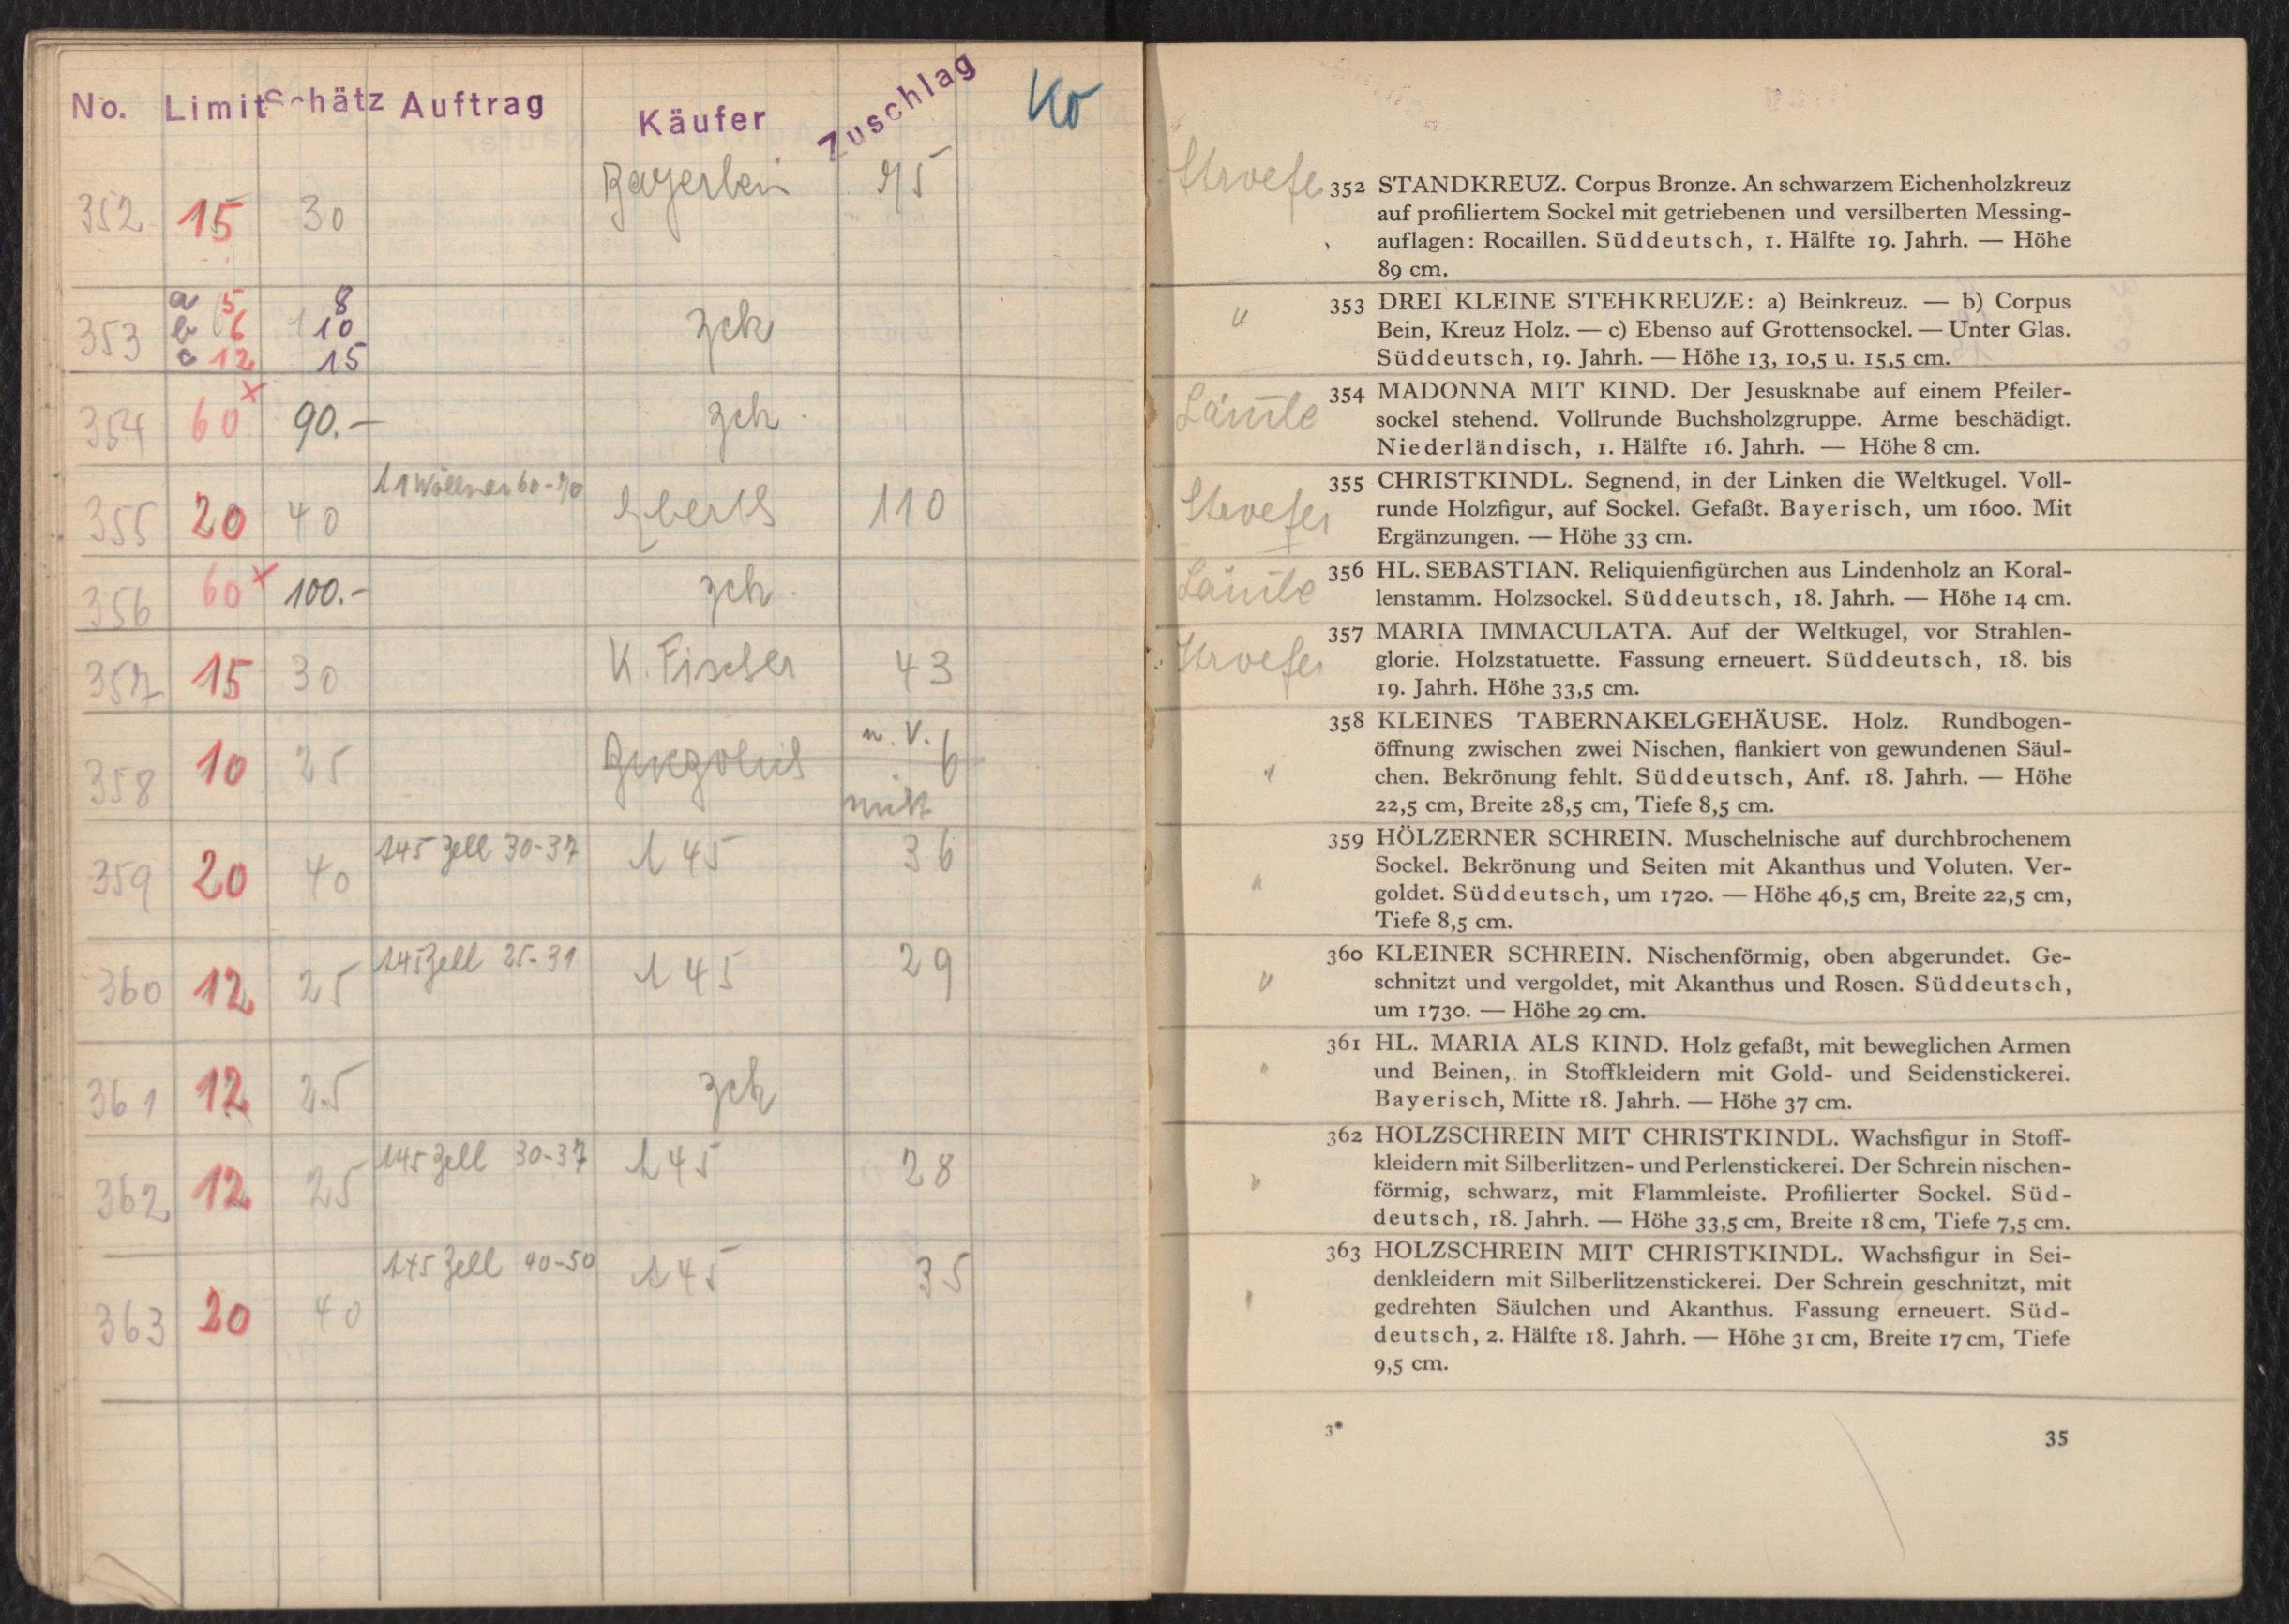 No. Limit Schätz Auftrag Käufer Zuschlag Kö
352 15 30 Bayerlein 75
353 a 5 8
b 6 10 zck
c 12 15
354 60 x 90.- zck
355 20 40 110
356 60 x 100.- zck
357 15 30 K. Fischer 43
358 10 25 n. V. 6
359 20 40 145 Zell 30-37 145 36
360 12 25 145 Zell 25-31 145 29
361 12 25 zck
362 12 25 145 Zell 30-37 145 28
363 20 40 145 Zell 40-50 145 35
Stroefer 352 STANDKREUZ. Corpus Bronze. An schwarzem Eichenholzkreuz
auf profiliertem Sockel mit getriebenen und versilberten Messing-
auflagen: Rocaillen. Süddeutsch, 1. Hälfte 19. Jahrh. — Höhe
89 cm.
" 353 DREI KLEINE STEHKREUZE: a) Beinkreuz. — b) Corpus
Bein, Kreuz Holz. — c) Ebenso auf Grottensockel. — Unter Glas.
Süddeutsch, 19. Jahrh. — Höhe 13, 10,5 u. 15,5 cm.
Lämle 354 MADONNA MIT KIND. Der Jesusknabe auf einem Pfeiler-
sockel stehend. Vollrunde Buchsholzgruppe. Arme beschädigt.
Niederländisch, 1. Hälfte 16. Jahrh. — Höhe 8 cm.
Stroefer 355 CHRISTKINDL. Segnend, in der Linken die Weltkugel. Voll-
runde Holzfigur, auf Sockel. Gefaßt. Bayerisch, um 1600. Mit
Ergänzungen. — Höhe 33 cm.
Lämle 356 HL. SEBASTIAN. Reliquienfigürchen aus Lindenholz an Koral-
lenstamm. Holzsockel. Süddeutsch, 18. Jahrh. — Höhe 14 cm.
Stroefer 357 MARIA IMMACULATA. Auf der Weltkugel, vor Strahlen-
glorie. Holzstatuette. Fassung erneuert. Süddeutsch, 18. bis
19. Jahrh. Höhe 33,5 cm.
358 KLEINES TABERNAKELGEHÄUSE. Holz. Rundbogen-
öffnung zwischen zwei Nischen, flankiert von gewundenen Säul-
" chen. Bekrönung fehlt. Süddeutsch, Anf. 18. Jahrh. — Höhe
22,5 cm, Breite 28,5 cm, Tiefe 8,5 cm.
359 HÖLZERNER SCHREIN. Muschelnische auf durchbrochenem
Sockel. Bekrönung und Seiten mit Akanthus und Voluten. Ver-
" goldet. Süddeutsch, um 1720. — Höhe 46,5 cm, Breite 22,5 cm,
Tiefe 8,5 cm.
360 KLEINER SCHREIN. Nischenförmig, oben abgerundet. Ge-
" schnitzt und vergoldet, mit Akanthus und Rosen. Süddeutsch,
um 1730. — Höhe 29 cm.
361 HL. MARIA ALS KIND. Holz gefaßt, mit beweglichen Armen
" und Beinen, in Stoffkleidern mit Gold- und Seidenstickerei.
Bayerisch, Mitte 18. Jahrh. — Höhe 37 cm.
362 HOLZSCHREIN MIT CHRISTKINDL. Wachsfigur in Stoff-
kleidern mit Silberlitzen- und Perlenstickerei. Der Schrein nischen-
" förmig, schwarz, mit Flammleiste. Profilierter Sockel. Süd-
deutsch, 18. Jahrh. — Höhe 33,5 cm, Breite 18 cm, Tiefe 7,5 cm.
363 HOLZSCHREIN MIT CHRISTKINDL. Wachsfigur in Sei-
denkleidern mit Silberlitzenstickerei. Der Schrein geschnitzt, mit
" gedrehten Säulchen und Akanthus. Fassung erneuert. Süd-
deutsch, 2. Hälfte 18. Jahrh. — Höhe 31 cm, Breite 17 cm, Tiefe
9,5 cm.
3*
35